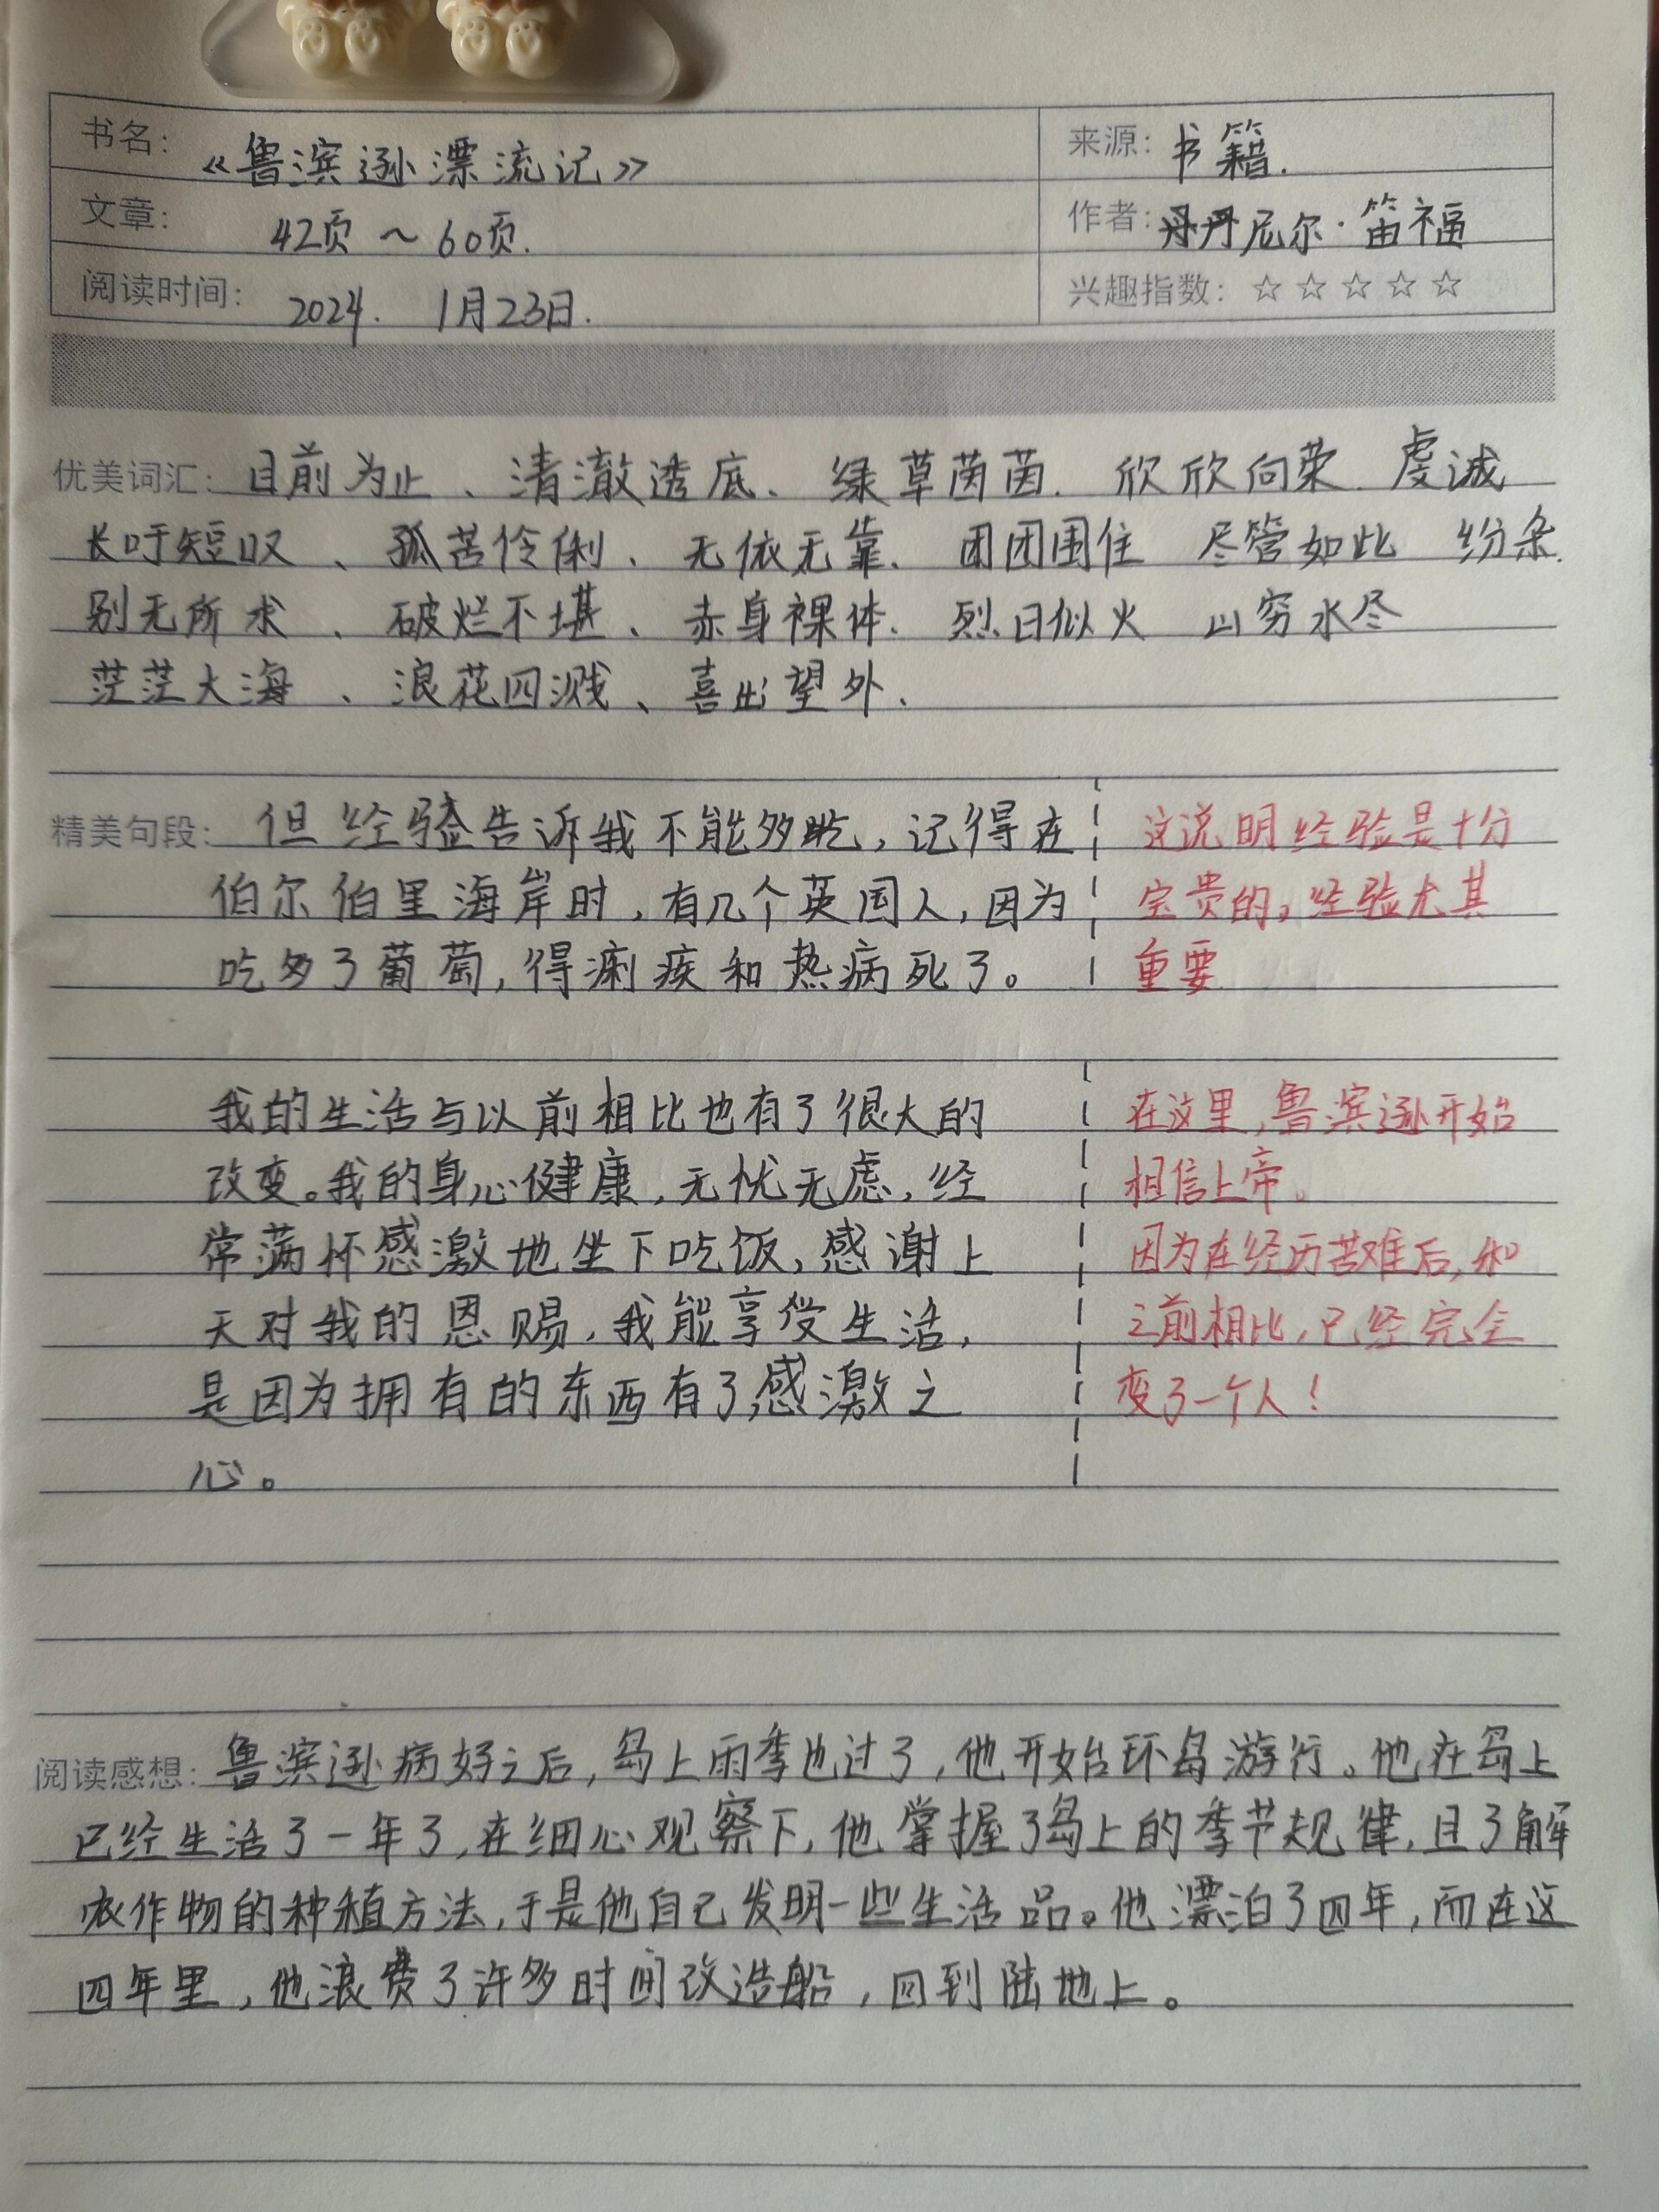 书名：《鲁滨逊漂流记》
来源：书籍.
文章：42页～60页.
作者：丹丹尼尔·笛福
阅读时间：2024. 1月23日.
兴趣指数：☆☆☆☆☆
优美词汇：目前为止、清澈透底、绿草茵茵. 欣欣向荣 虔诚
长吁短叹、孤苦伶俐、无依无靠. 团团围住 尽管如此 纷杂.
别无所求、破烂不堪、赤身裸体. 烈日似火 山穷水尽
茫茫大海、浪花四溅、喜出望外.
精美句段：但经验告诉我不能多吃，记得在
伯尔伯里海岸时，有几个英国人，因为
吃多了葡萄，得痢疾和热病死了。
这说明经验是十分
宝贵的，经验尤其
重要
我的生活与以前相比也有了很大的
改变。我的身心健康，无忧无虑，经
常满怀感激地坐下吃饭，感谢上
天对我的恩赐，我能享受生活，
是因为拥有的东西有了感激之
心。
在这里，鲁滨逊开始
相信上帝。
因为在经历苦难后，和
之前相比，已经完全
变了一个人！
阅读感想：鲁滨逊病好之后，岛上雨季也过了，他开始环岛游行。他在岛上
已经生活了一年了，在细心观察下，他掌握了岛上的季节规律，且了解
农作物的种植方法，于是他自己发明一些生活品。他漂泊了四年，而在这
四年里，他浪费了许多时间改造船，回到陆地上。